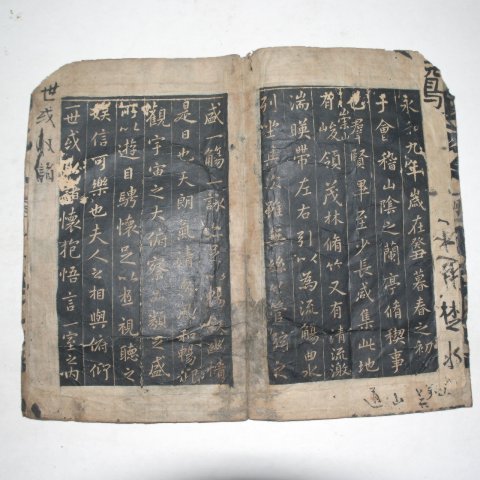 永和九年歲在癸丑暮春之初
于會稽山陰之蘭亭脩禊事
也羣賢畢至少長咸集此地
有崇山峻領茂林脩竹又有清流激
湍暎帶左右引以為流觴曲水
列坐其次雖無絲竹管弦之
盛一觴一詠亦足以暢敘幽情
是日也天朗氣清惠風和暢仰
觀宇宙之大俯察品類之盛
所以遊目騁懷足以極視聽之
娛信可樂也夫人之相與俯仰
一世或取諸懷抱悟言一室之內
世或取諸